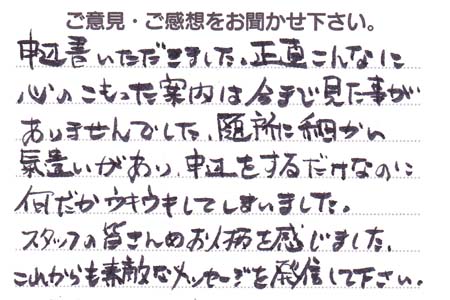 ご意見・ご感想をお聞かせ下さい。
申込書いただきました。正直こんなに
心のこもった案内は今まで見た事が
ありませんでした。随所に細かい
気遣いがあり、申込をするだけなのに
何だかウキウキしてしまいました。
スタッフの皆さんのお人柄を感じました。
これからも素敵なメッセージを発信して下さい。